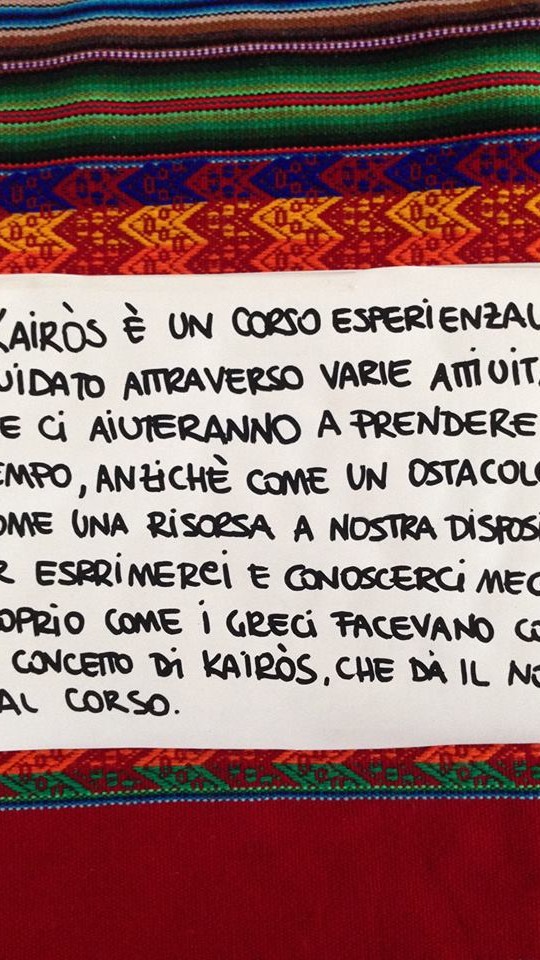 KAIRÒS È UN CORSO ESPERIENZAL
UIDATO ATTRAVERSO VARIE ATTIVIT
E CI AIUTERANNO A PRENDERE
EMPO, ANZICHÈ COME UN OSTACOLO
OME UNA RISORSA A NOSTRA DISPOSI
R ESPRIMERCI E CONOSCERCI MEG
OPRIO COME I GRECI FACEVANO CO
CONCETTO DI KAIRÒS, CHE DÀ IL NO
AL CORSO.